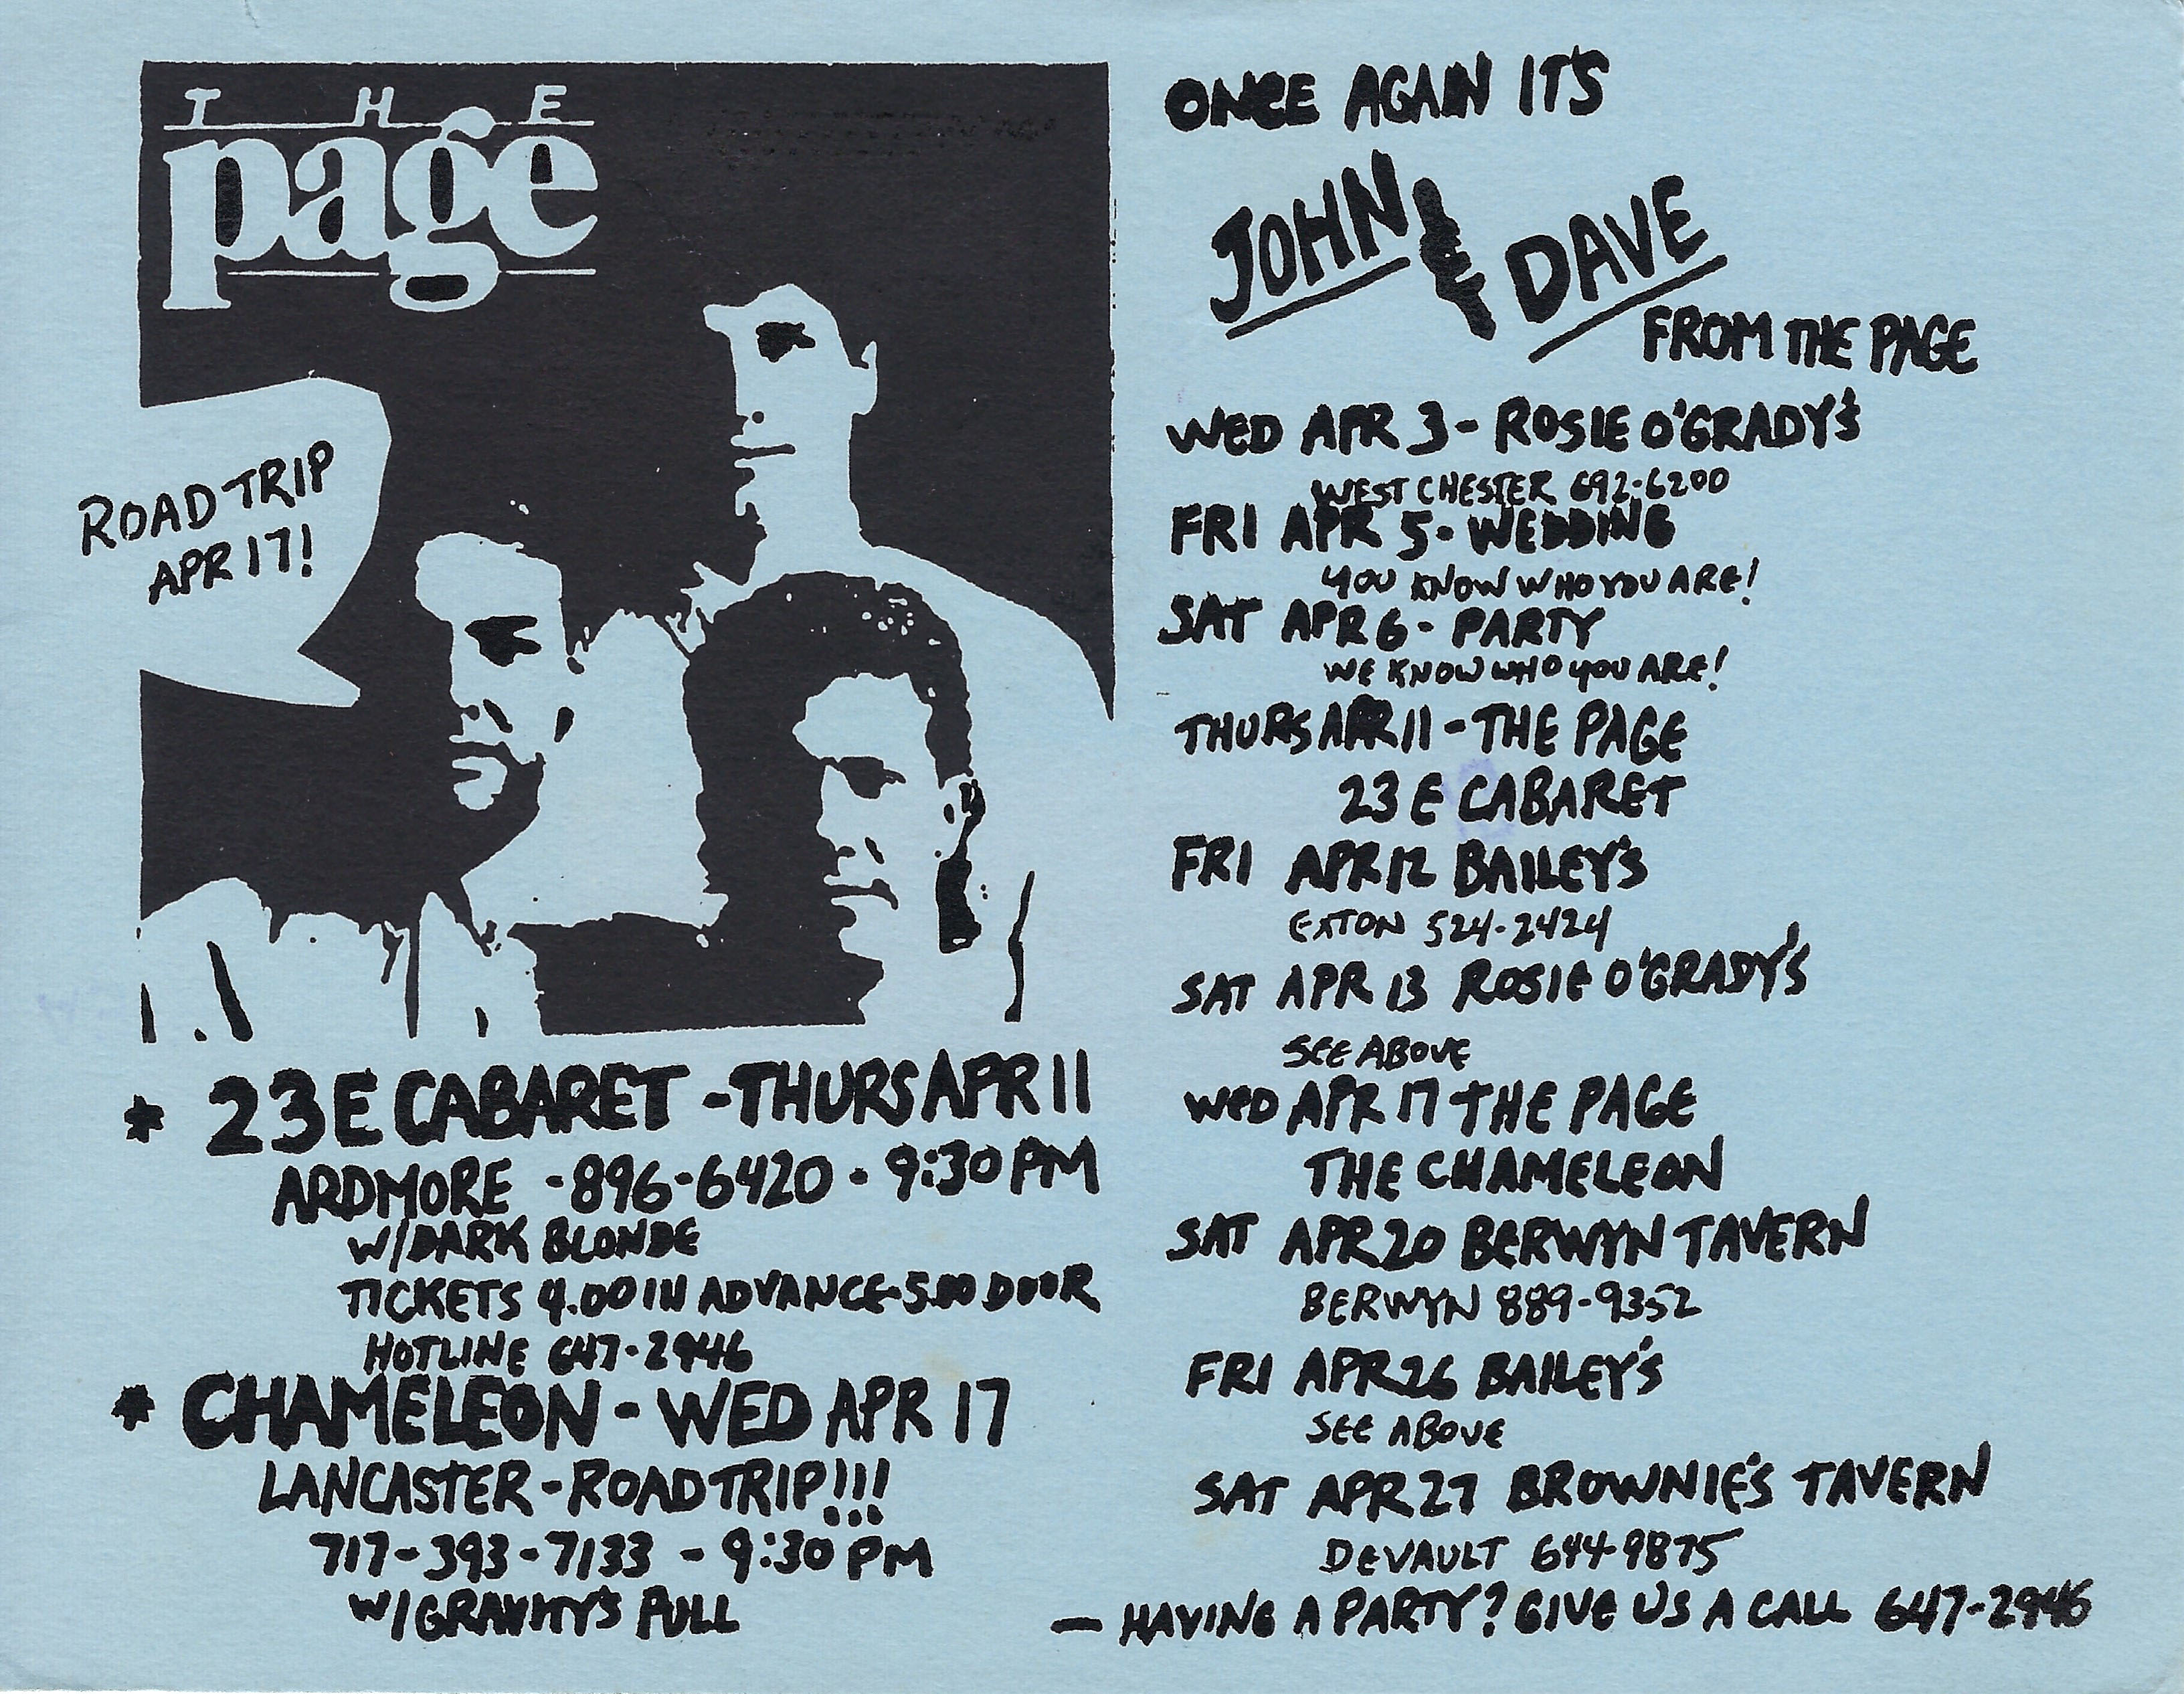 THE
page
ROAD TRIP
APR 17!
* 23 E CABARET - THURS APR 11
ARDMORE - 896-6420 - 9:30 PM
W/DARK BLONDE
TICKETS 4.00 IN ADVANCE - 5.00 DOOR
HOTLINE 647-2946
* CHAMELEON - WED APR 17
LANCASTER - ROAD TRIP!!!
717-393-7133 - 9:30 PM
W/GRAVITY'S PULL
ONCE AGAIN IT'S
JOHN & DAVE
FROM THE PAGE
WED APR 3 - ROSIE O'GRADY'S
WEST CHESTER 692-6200
FRI APR 5 - WEDDING
YOU KNOW WHO YOU ARE!
SAT APR 6 - PARTY
WE KNOW WHO YOU ARE!
THURS APR 11 - THE PAGE
23 E CABARET
FRI APR 12 BAILEY'S
EXTON 524-2424
SAT APR 13 ROSIE O'GRADY'S
SEE ABOVE
WED APR 17 THE PAGE
THE CHAMELEON
SAT APR 20 BERWYN TAVERN
BERWYN 889-9352
FRI APR 26 BAILEY'S
SEE ABOVE
SAT APR 27 BROWNIE'S TAVERN
DEVAULT 644-9875
— HAVING A PARTY? GIVE US A CALL 647-2946